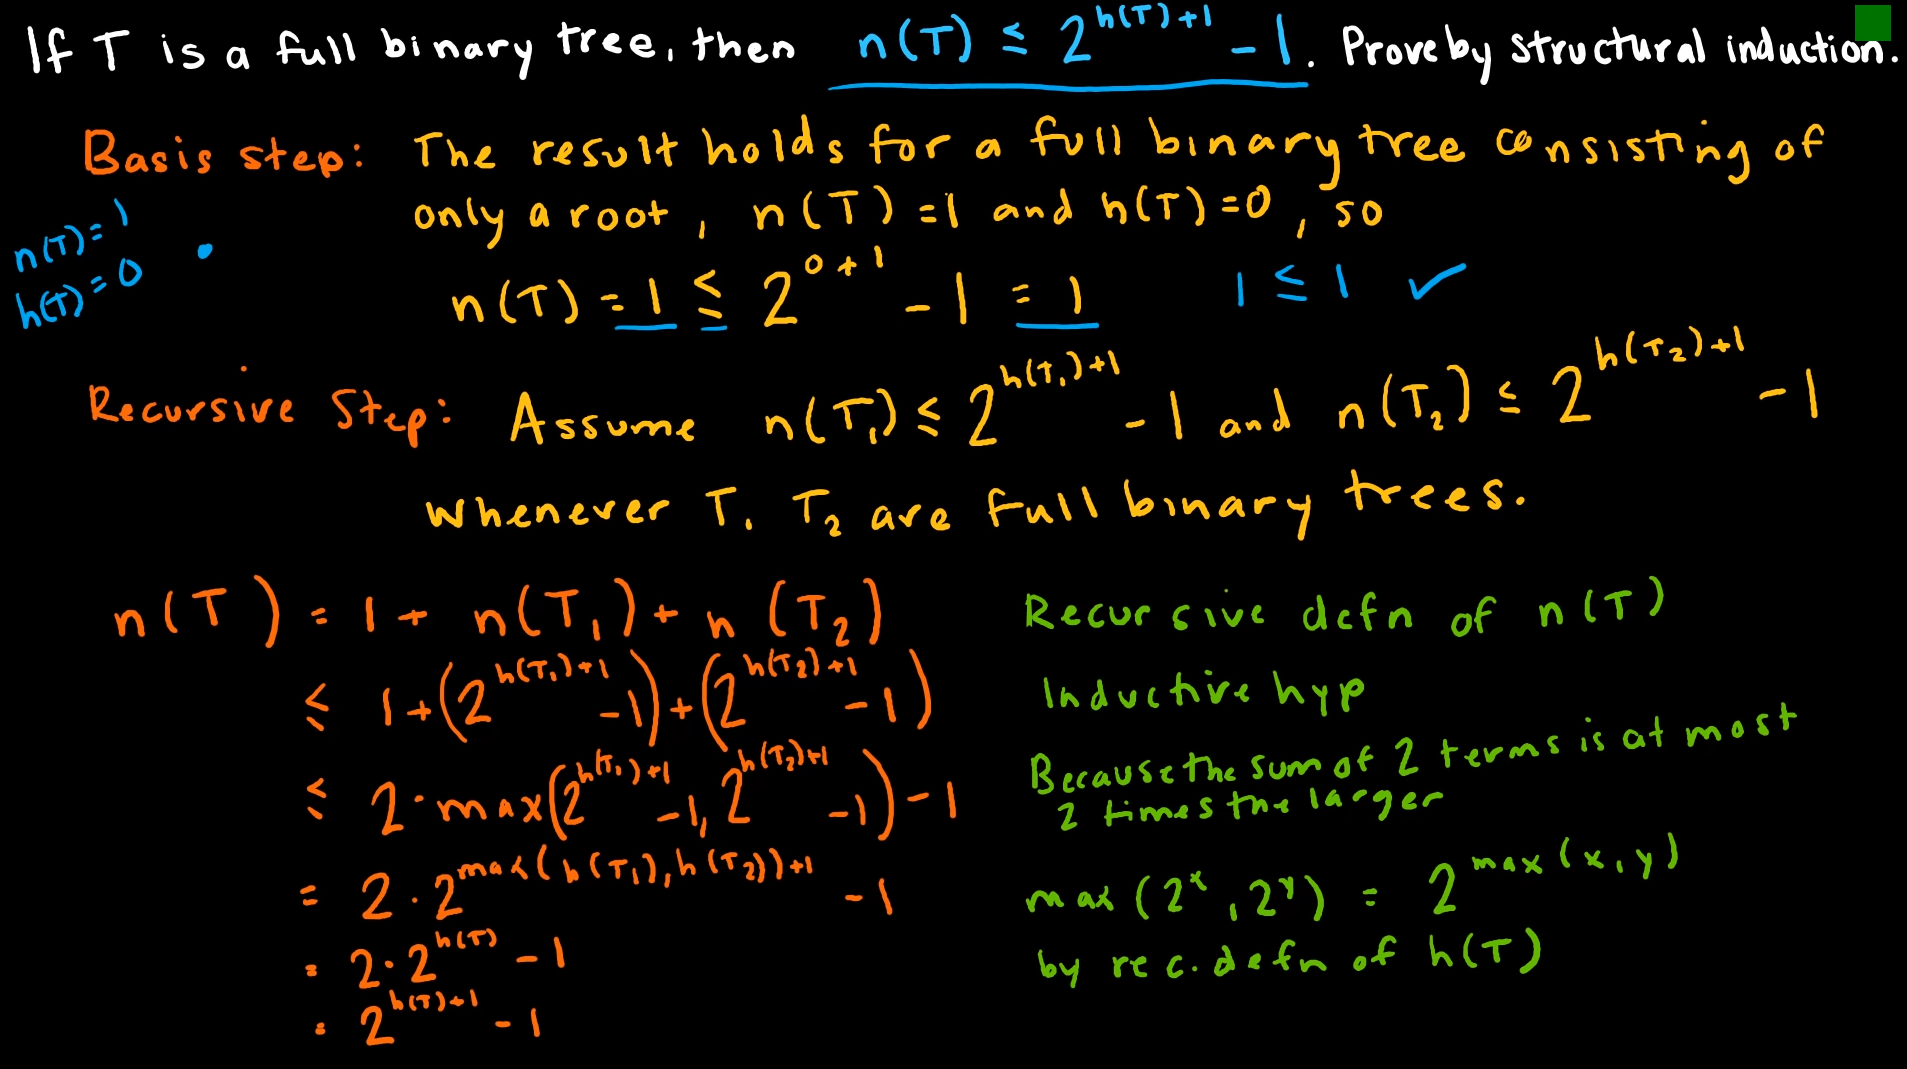 If T is a full binary tree, then n(T) ≤ 2^{h(T)+1} - 1. Prove by structural induction.
Basis step: The result holds for a full binary tree consisting of
only a root, n(T) = 1 and h(T) = 0, so
n(T) = 1
h(T) = 0
n(T) = 1 ≤ 2^{0+1} - 1 = 1
1 ≤ 1 ✓
Recursive Step: Assume n(T₁) ≤ 2^{h(T₁)+1} - 1 and n(T₂) ≤ 2^{h(T₂)+1} - 1
whenever T₁ T₂ are full binary trees.
n(T) = 1 + n(T₁) + n(T₂) Recursive defn of n(T)
≤ 1 + (2^{h(T₁)+1} - 1) + (2^{h(T₂)+1} - 1) Inductive hyp
≤ 2 · max(2^{h(T₁)+1} - 1, 2^{h(T₂)+1} - 1) - 1 Because the sum of 2 terms is at most
2 times the larger
= 2 · 2^{max(h(T₁), h(T₂))+1} - 1 max(2^x, 2^y) = 2^{max(x,y)}
= 2 · 2^{h(T)} - 1 by rec. defn of h(T)
= 2^{h(T)+1} - 1